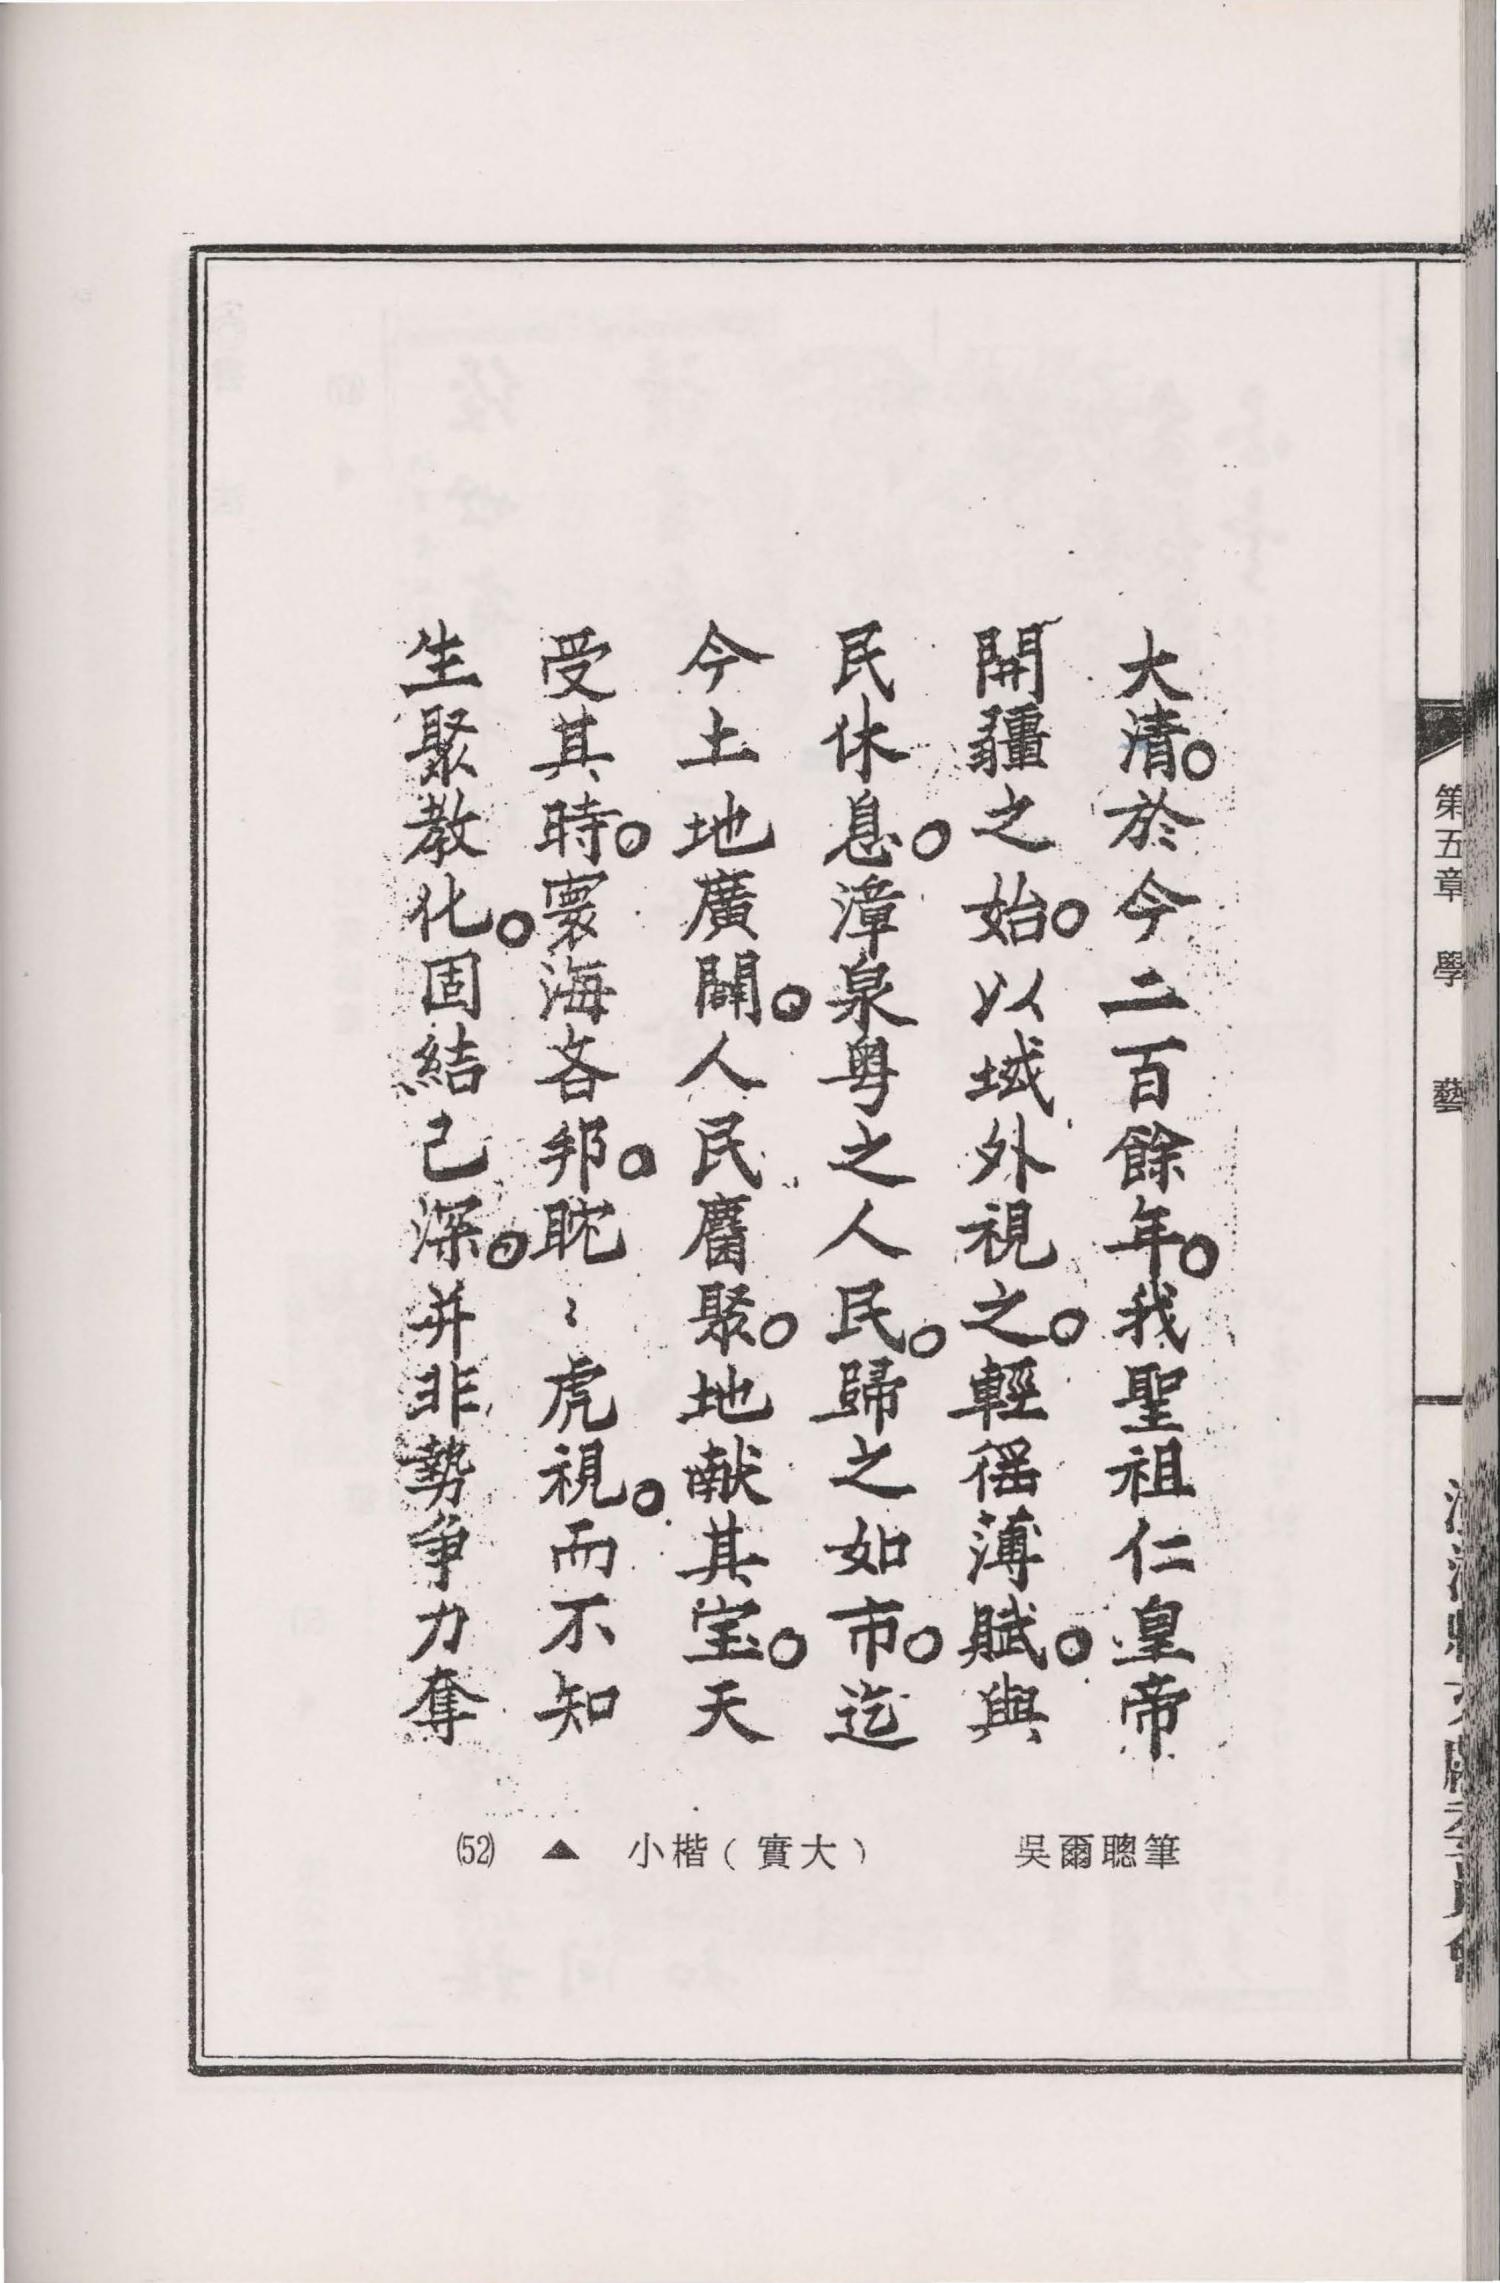 第五章　學　藝
大清。於今二百餘年。我聖祖仁皇帝
開疆之始。以域外視之。輕徭薄賦。與
民休息。漳泉粤之人民。歸之如市。迄
今土地廣闢。人民麕聚。地献其宝。天
受其時。寰海各邦。耽〻虎視。而不知
生聚教化。固結已深。并非勢爭力奪
吳爾聰筆
小楷（實大）
▲
(52)